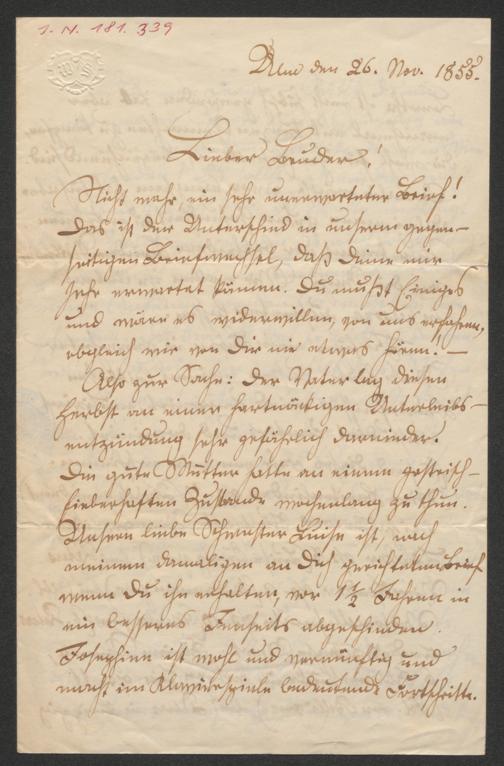 I. N. 181.339
WS
Ulm den 26. Nov. 1855.
Lieber Bruder!
Nicht mehr ein sehr unerwarteter Brief!
Das ist der Unterschied in unserm gegen-
seitigen Briefwechsel, daß Deine mir
sehr erwartet kämen. Du mußt Einiges
und wäre es widerwillen, von uns erfahren,
obgleich wir von Dir nie etwas hören. –
Also zur Sache: Der Vater lag diesen
Herbst an einer hartnäckigen Unterleibs-
entzündung sehr gefährlich darnieder.
Die gute Mutter hatte an einem gastrisch-
fieberhaften Zustande wochenlang zu thun.
Unsere liebe Schwester Luise ist, nach
meinem damaligen an Dich gerichteten Brief
wenn Du ihn erhalten, vor 1 1/2 Jahren in
ein besseres Jenseits abgeschieden.
Josephine ist wohl und vernünftig und
macht im Klavierspiele bedeutende Fortschritte.